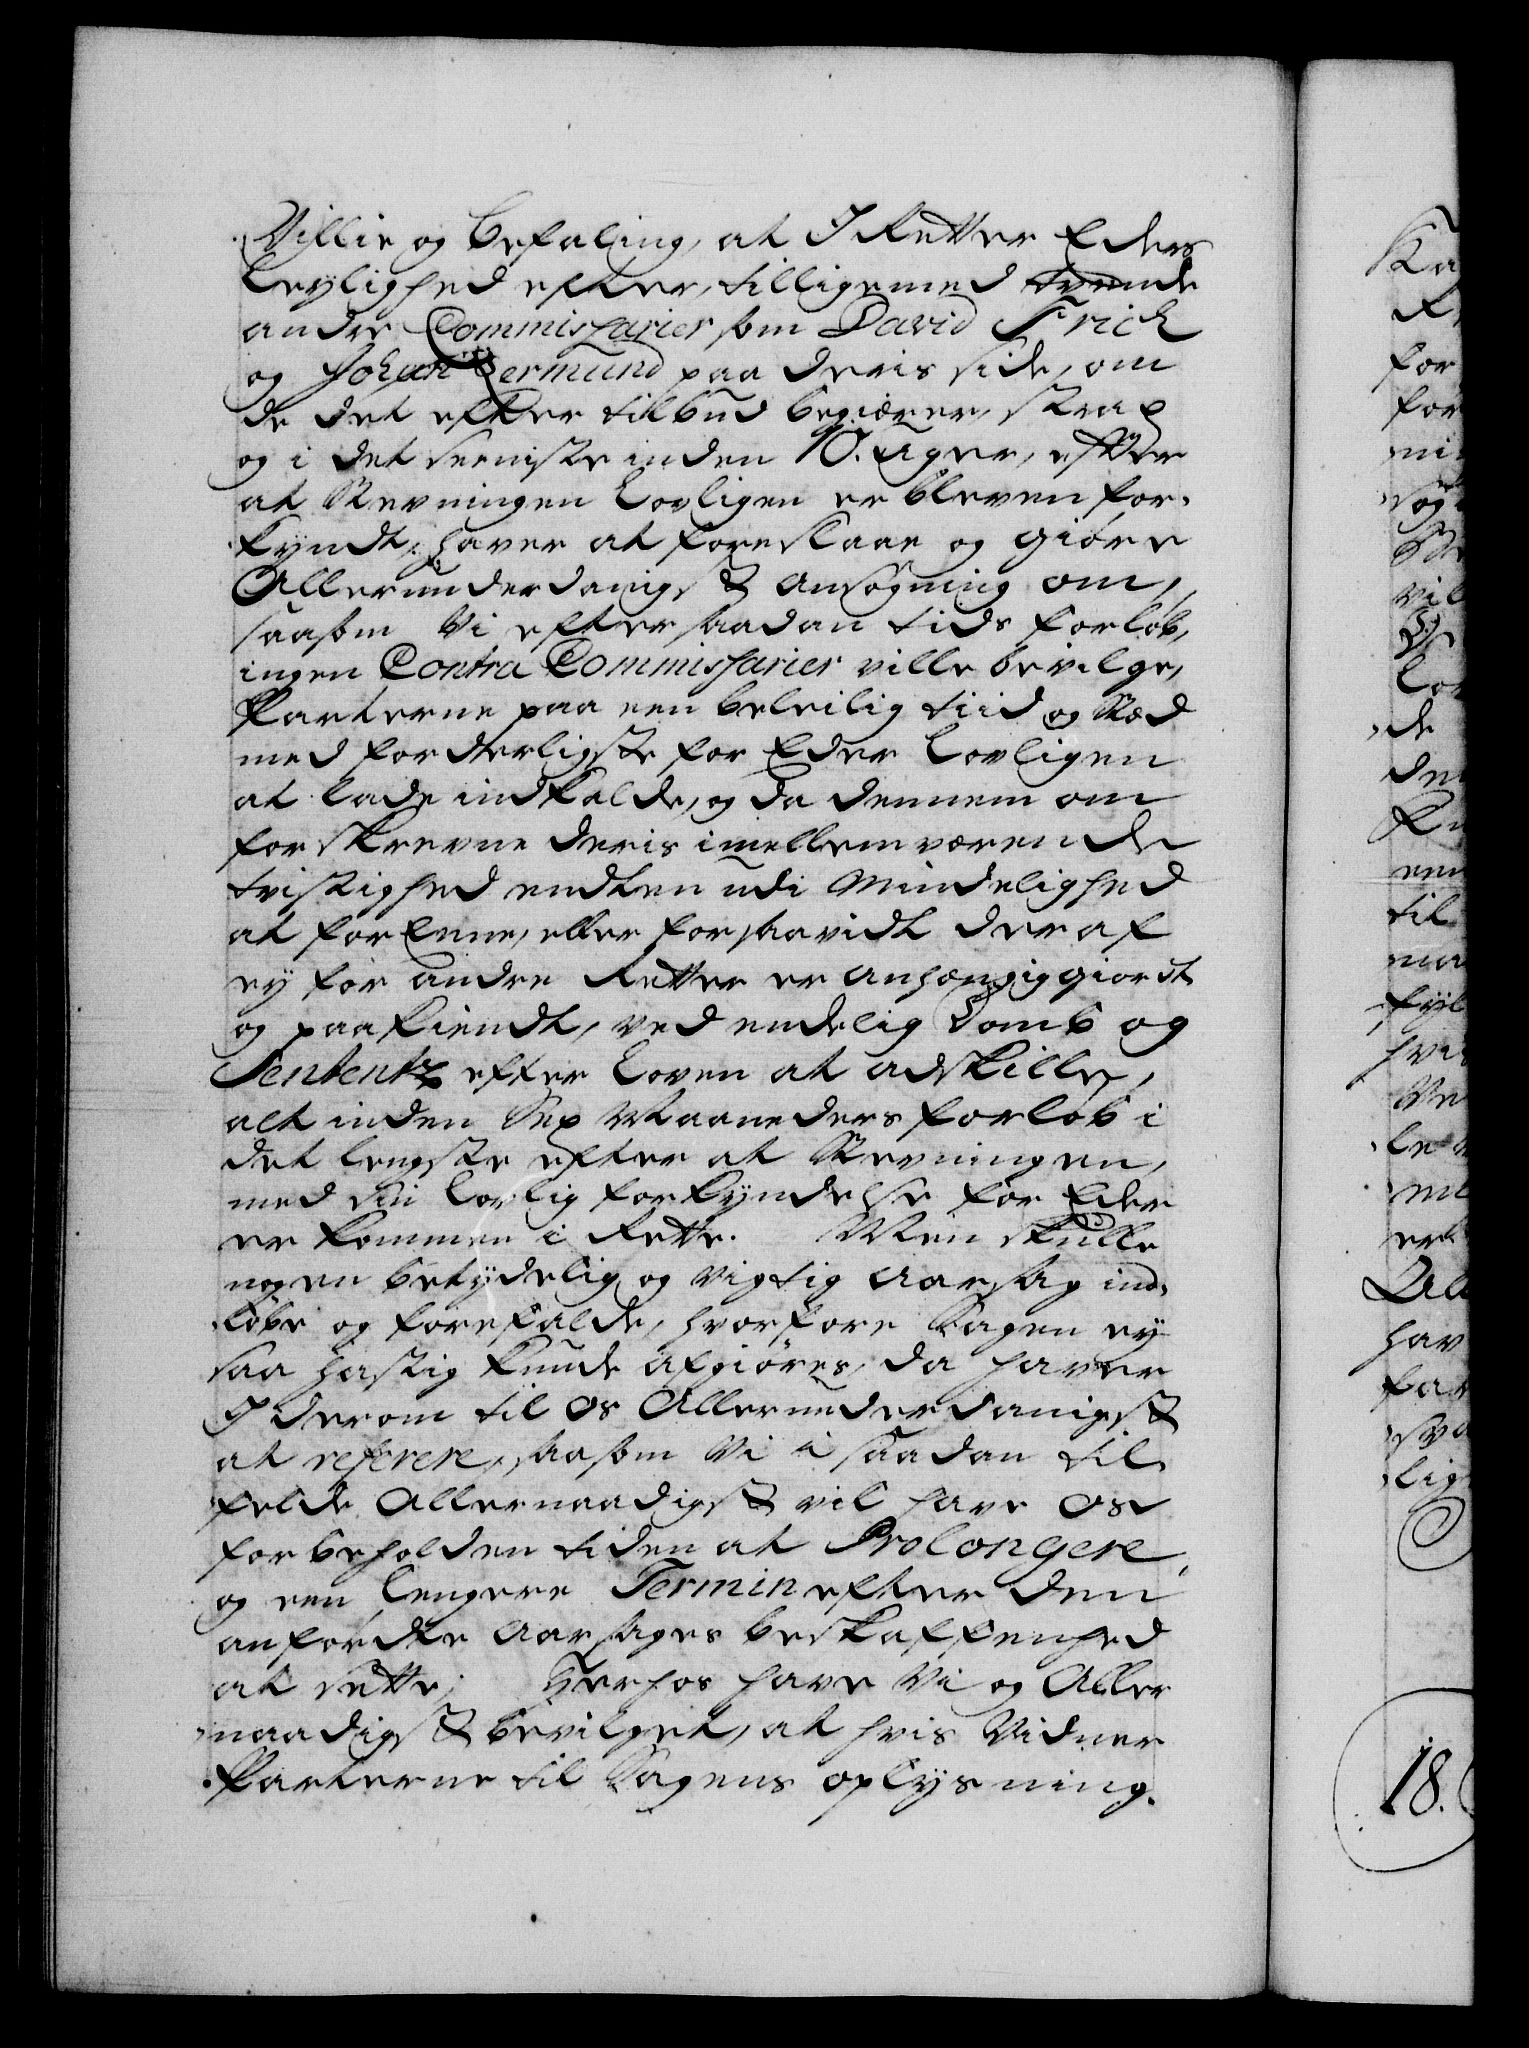 Villie og Befaling, at I Retter Eders
leylighed efter, tilligemed tvende
andre Commissarier som David Frich
og Johan Vermund paa deris side, om
de det efter tilbud begiærer, strax
og i det seeniste inden 10. Uger, efter
at Stevningen Lovligen er bleven for-
kyndt, haver at foreslaae og giøre
Allerunderdanigst ansøgning om,
saasom Vi efter saadan tids forløb,
ingen Contra Commissarier ville bevilge,
Parterne paa een beleilig tiid og Stæd
med forderligste for Eder Lovligen
at lade indkalde, og da dennem om
forskrevne deris imellemværende
tvistighed endten udi Mindelighed
at forEene, eller forsaavidt deraf
ey for andre Retter er anhængiggiordt
og paakiendt, ved endelig Domb og
Sententz efter Loven at adskille,
alt inden Sex Maaneders forløb i
det lengste efter at Stevningen,
med sin lovlig forkyndelse for Eder
er kommen i Rette. Men skulle
nogen betydelig og vigtig Aarsag ind-
løbe og forefalde, hvorfore Sagen ey
saa hastig kunde afgiøres, da haver
I derom til os Allerunderdanigst
at referere, saasom Vi i saadan til
felde Allernaadigst vil have os
forbeholden tiden at Prolongere,
og een lengere Termin efter den
anførdte Aarsages beskaffenhed
at sette; Herhos have Vi og Aller
naadigst bevilget, at hvis Vidner
Parterne til Sagens oplysning.
18.